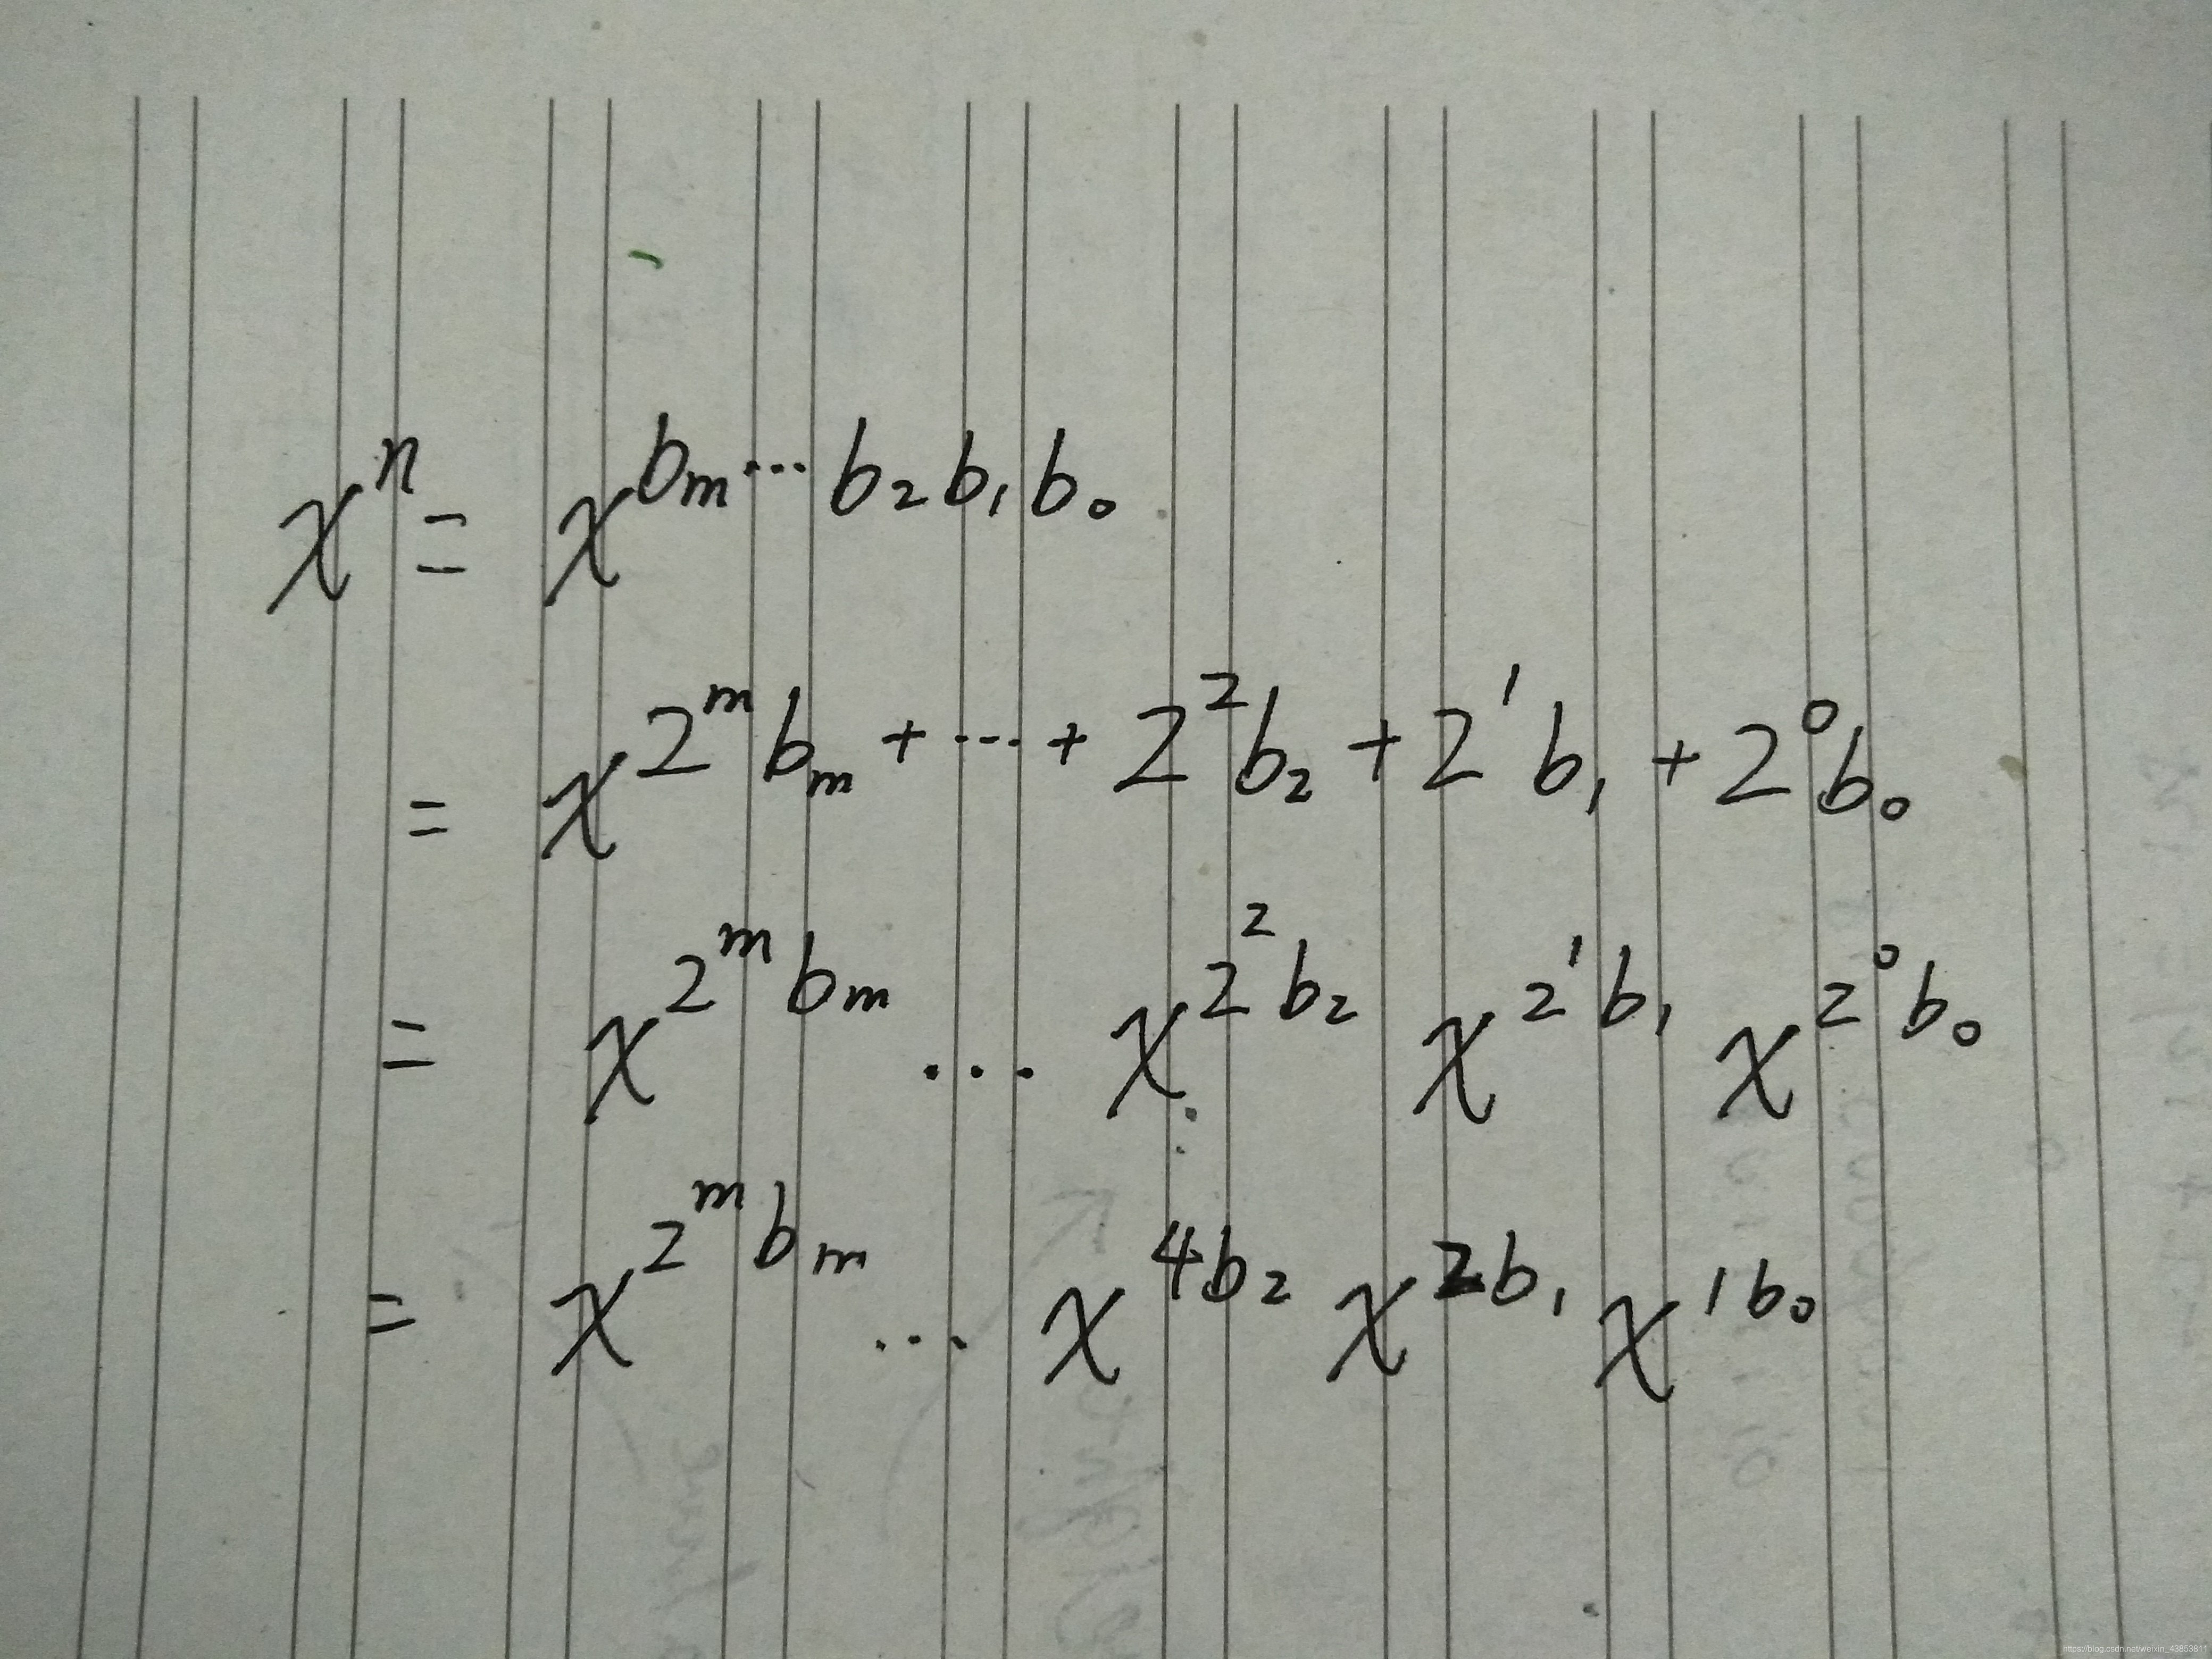 x^n = x^{b_m ⋯ b_2 b_1 b_0}
= x^{2^m b_m + ⋯ + 2^2 b_2 + 2^1 b_1 + 2^0 b_0}
= x^{2^m b_m} … x^{2^2 b_2} x^{2^1 b_1} x^{2^0 b_0}
= x^{2^m b_m} … x^{4b_2} x^{2b_1} x^{1b_0}
https://blog.csdn.net/weixin_43853811